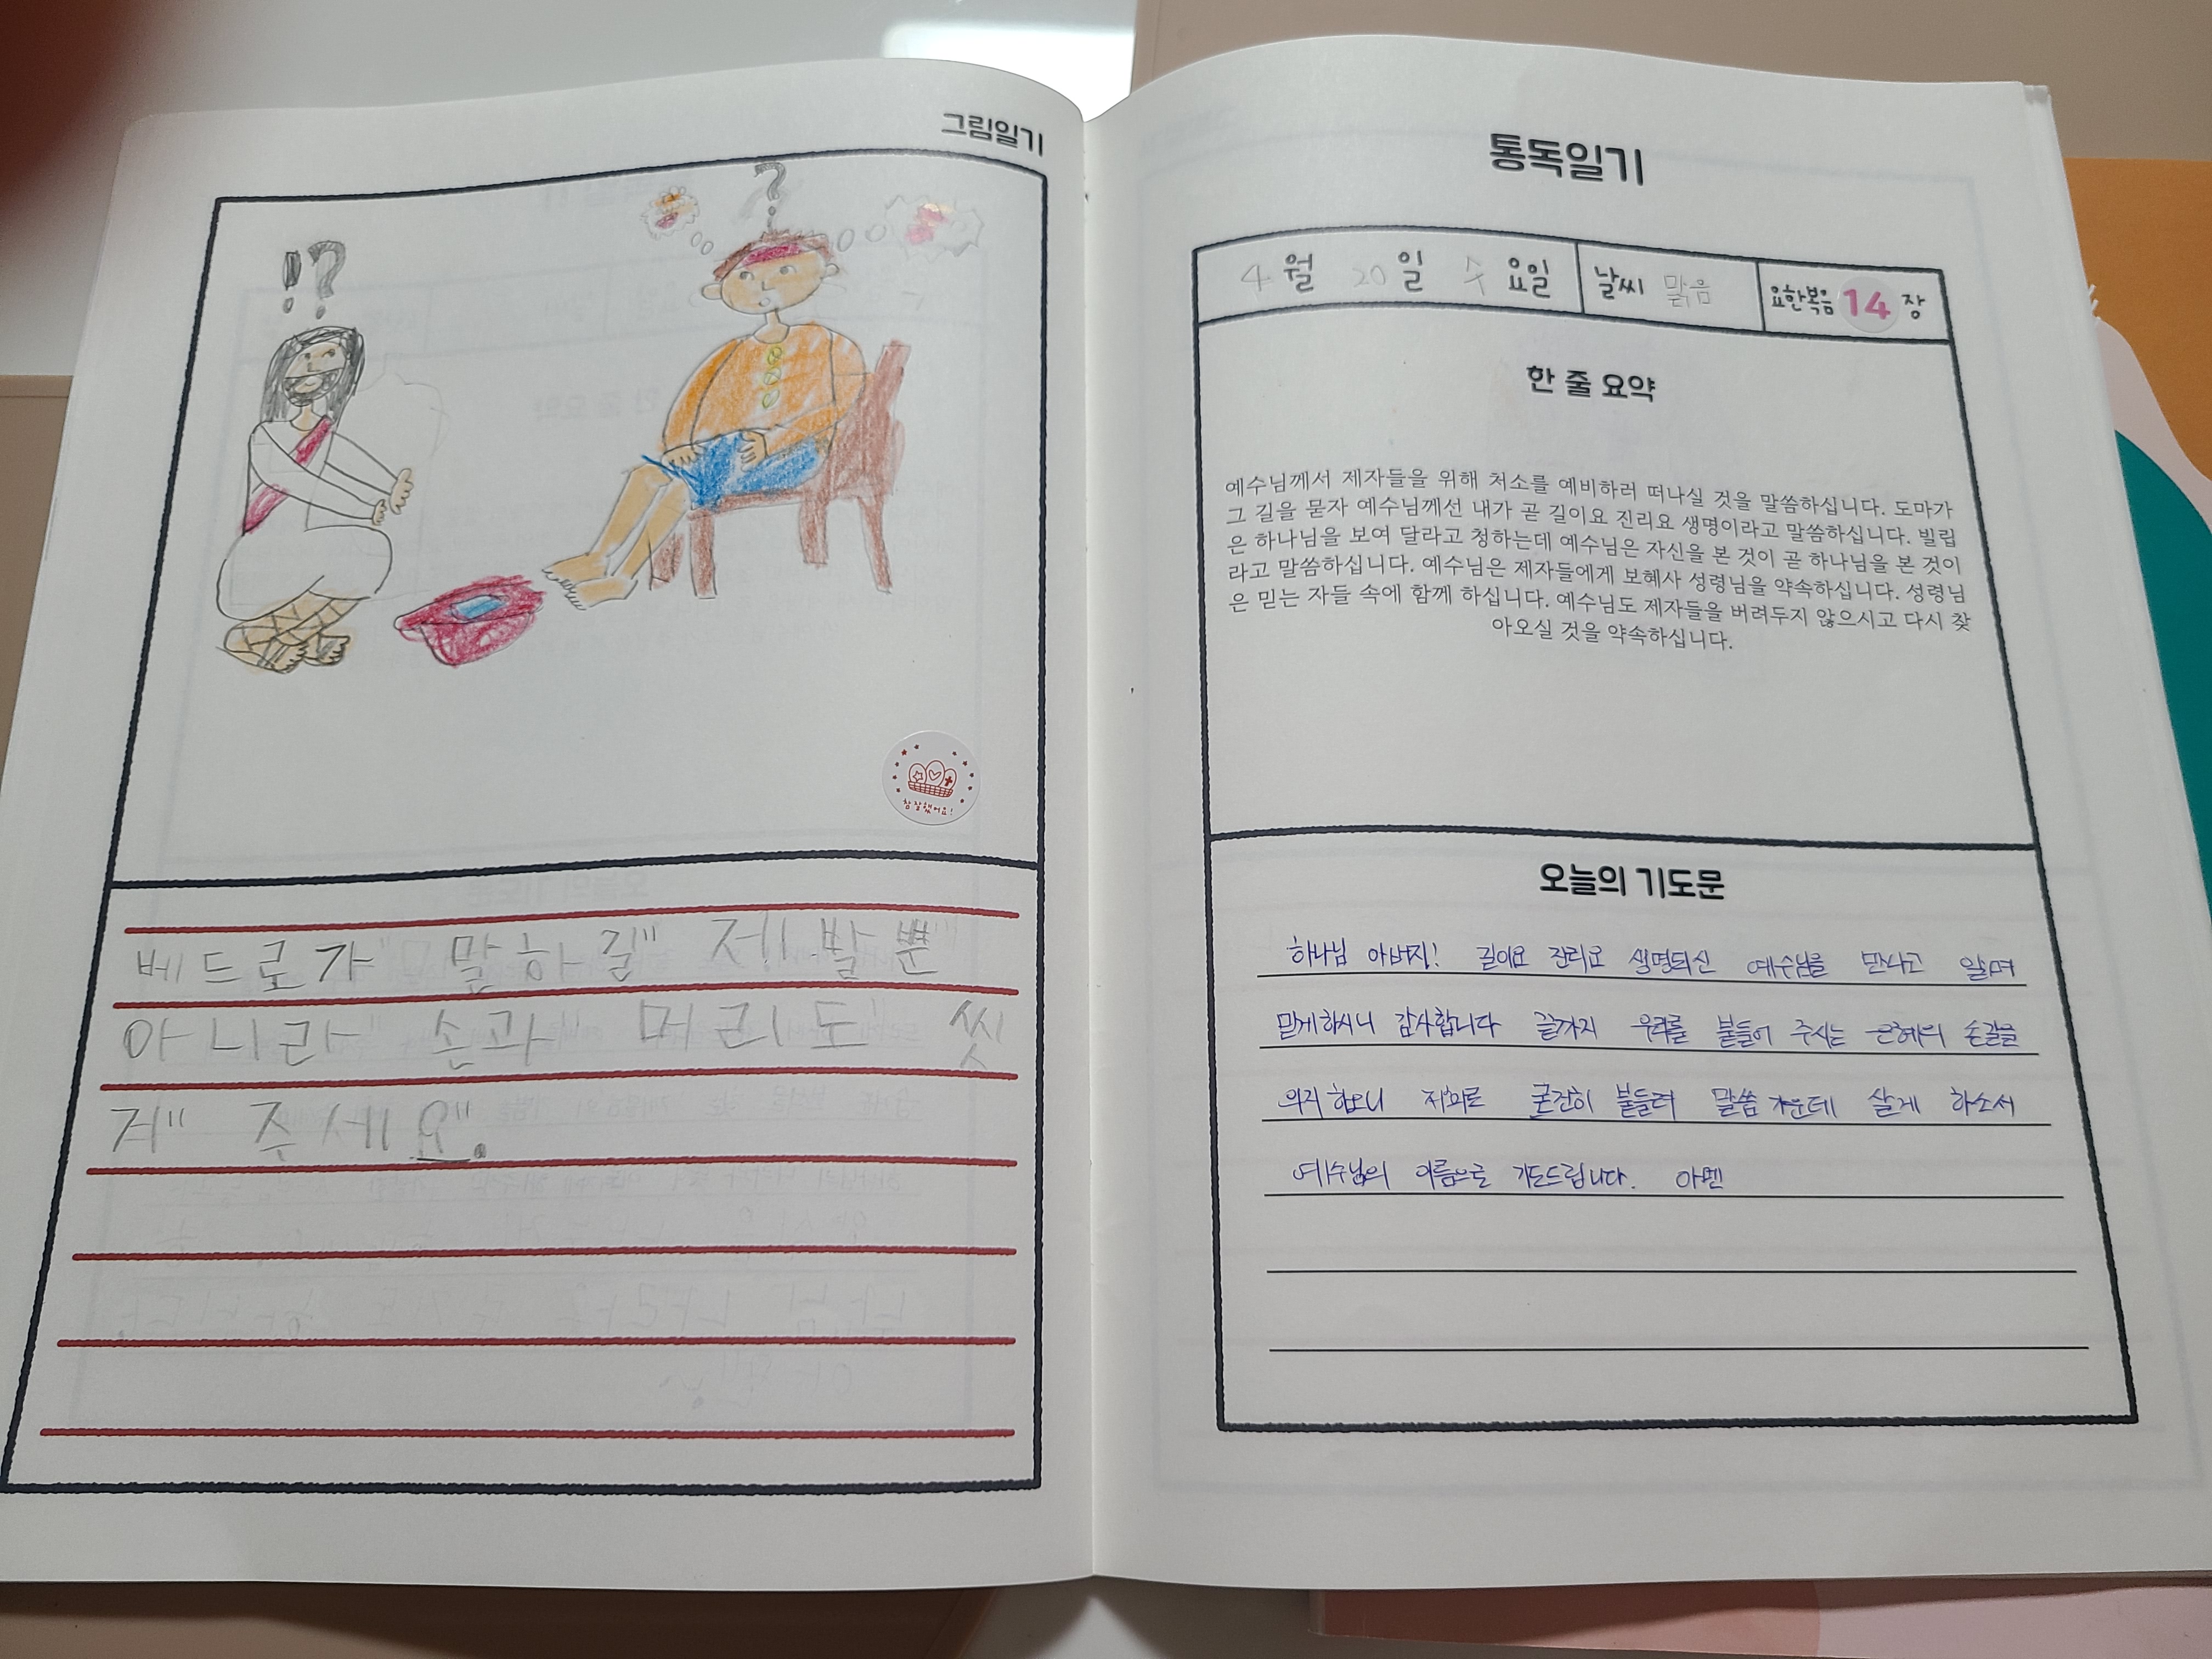 그림일기
!?
?
참 잘했어요!
베드로가" 말하길" 제! 발뿐
아니라" 손과" 머리도" 씻
겨" 주세요".
통독일기
4월 20일 수요일 날씨 맑음 요한복음 14장
한 줄 요약
예수님께서 제자들을 위해 처소를 예비하러 떠나실 것을 말씀하십니다. 도마가
그 길을 묻자 예수님께선 내가 곧 길이요 진리요 생명이라고 말씀하십니다. 빌립
은 하나님을 보여 달라고 청하는데 예수님은 자신을 본 것이 곧 하나님을 본 것이
라고 말씀하십니다. 예수님은 제자들에게 보혜사 성령님을 약속하십니다. 성령님
은 믿는 자들 속에 함께 하십니다. 예수님도 제자들을 버려두지 않으시고 다시 찾
아오실 것을 약속하십니다.
오늘의 기도문
하나님 아버지! 길이요 진리요 생명되신 예수님을 만나고 알며
믿게하시니 감사합니다 끝까지 우리를 붙들어 주시는 은혜의 손길을
의지하오니 저희로 굳건히 붙들려 말씀 가운데 살게 하소서
예수님의 이름으로 기도드립니다. 아멘